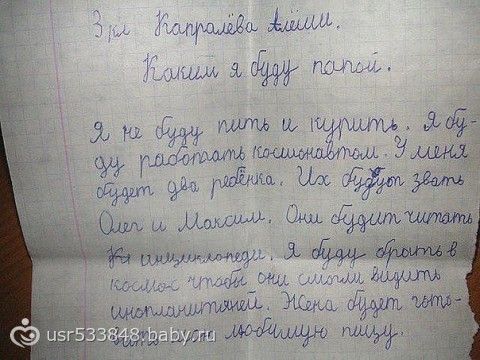 3 кл Капралёва Алёши.
Каким я буду папой.
Я не буду пить и курить. Я бу-
ду работать космонавтом. У меня
будет два ребёнка. Их будут звать
Олег и Максим. Они будит читать
инциклопеди. Я буду брать в
космос чтобы они смогли видить
инопланитяней. Жена будет
мою любимую пиццу.
usr533848.baby.ru